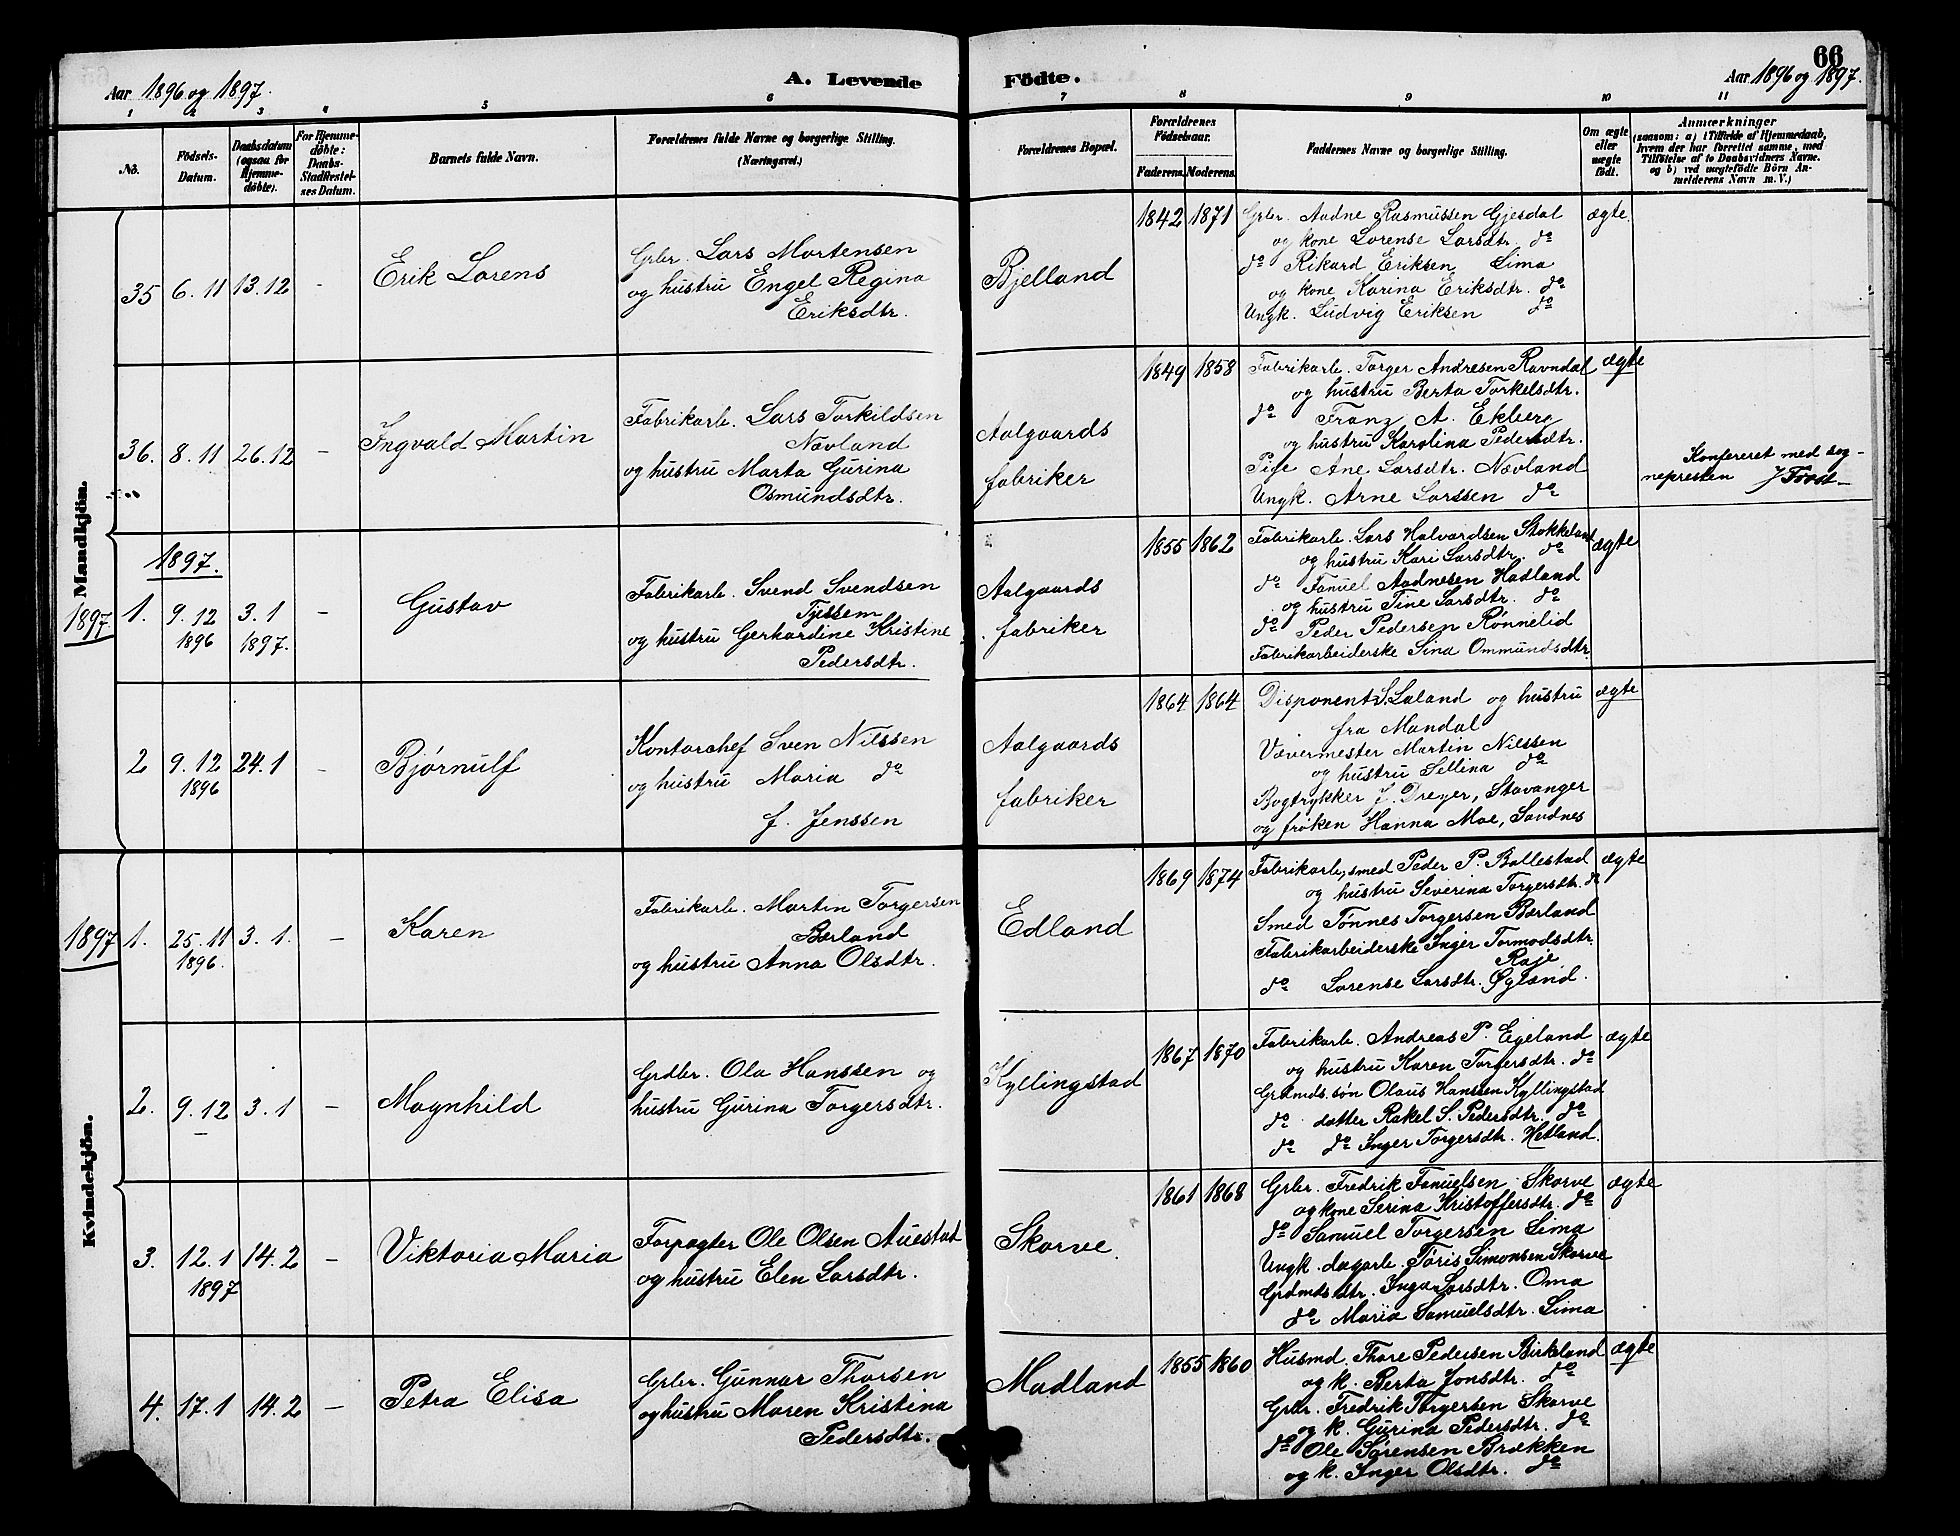 66
Aar 1896 og 1897.
A. Levende Fødte.
Aar 1896 og 1897.
1 2 3 4 5 6 7 8 9 10 11
No.
Fødsels-Datum.
Daabsdatum (ogsaa for Hjemmedøbte).
For Hjemmedøbte: Daabs-Stadfæstelses Datum.
Barnets fulde Navn.
Forældrenes fulde Navne og borgerlige Stilling. (Næringsvei.)
Forældrenes Bopæl.
Forældrenes Fødselsaar.
Faderens. Moderens.
Faddernes Navne og borgerlige Stilling.
Om ægte eller uægte født.
Anmærkninger
(saasom: a) i Tilfælde af Hjemmedaab, hvem der har forrettet samme, med Tilføielse af to Daabsvidners Navne. og b) ved uægtefødte Børn Anmelderens Navn m. V.)
Mandkjön.
35 6.11 13.12 -
Erik Lorens
Grbr. Lars Mortensen
og hustru Engel Regina
Eriksdtr.
Bjelland
1842 1871
Grbr. Aadne Rasmussen Gjesdal
og kone Lorense Larsdtr. do
do Rikard Eriksen Lima
og kone Karina Eriksdtr. do
Ungk. Ludvig Eriksen do
ægte.
36. 8.11 26.12 -
Ingvald Martin
Fabrikarb. Lars Torkildsen
Nævland
og hustru Marta Gurina
Osmundsdtr.
Aalgaards
fabriker
1849 1858
Fabrikarb. Torger Andresen Ravndal
og hustru Berta Torkelsdtr.
do Franz A. Ekberg
og hustru Karolina Pedersdtr.
Pige Ane Larsdtr. Nævland
Ungk. Arne Larssen do
ægte
Konfereret med sog-
nepresten
1897.
1897
1. 9.12 1896 3.1 1897. -
Gustav
Fabrikarb. Svend Svendsen
Tjessem
og hustru Gerhardine Kristine
Pedersdtr.
Aalgaards
fabriker
1855 1862
Fabrikarb. Lars Halvardsen Stokkeland
og hustru Kari Larsdtr. do
do Fanuel Aadnesen Hadland
og hustru Tine Larsdtr. do
do Peder Pedersen Rønnelid
Fabrikarbeiderske Sina Ommundsdtr.
ægte
2 9.12 1896 24.1 -
Bjørnulf
Kontorchef Sven Nilssen
og hustru Maria do
f. Jenssen
Aalgaards
fabriker
1864 1864
Disponent S. Laland og hustru
fra Mandal
Vævermester Martin Nilssen
og hustru Sellina do
Bogtrykker J. Dreyer, Stavanger
og frøken Hanna Moe, Sandnes
ægte
Kvindekjön.
1897
1. 25.11 1896. 3.1. -
Karen
Fabrikarb. Martin Torgersen
Bærland
og hustru Anna Olsdtr.
Edland
1869 1874
Fabrikarb., smed Peder P. Ballestad
og hustru Severina Torgersdtr. do
Smed Tønnes Torgersen Bærland
Fabrikarbeiderske Inger Tormodsdtr.
Raje
do Lorense Larsdtr. Øgland.
ægte
2. 9.12 3.1 -
Magnhild
Grdbr. Ola Hanssen og
hustru Gurina Torgersdtr.
Kyllingstad
1867 1870
Fabrikarb. Andreas P. Egeland
og hustru Karen Torgersdtr. do
Grdmds. søn Olaus Hanssen Kyllingstad
do datter Rakel S. Pedersdtr. do
do do Inger Torgersdtr. Hetland.
ægte
3. 12.1 1897 14.2 -
Viktoria Maria
Forpagter Ole Olsen Auestad
og hustru Elen Larsdtr.
Skorve.
1861 1868
Grbr. Fredrik Fanuelsen Skorve
og kone Serina Kristoffersdtr. do
do Samuel Torgersen Lima
Ungk. dagarb. Tøris Simonsen Skorve
Grdmdsdtr. Inga Larsdtr. Oma
do Maria Samuelsdtr. Lima
ægte
4. 17.1 14.2 -
Petra Elisa
Grbr. Gunnar Thorsen
og hustru Maren Kristina
Pedersdtr.
Madland
1855 1860
Husmd. Thore Pedersen Birkeland
og k. Berta Jonsdtr. do
Grbr. Fredrik Torgersen Skorve
og k. Gurina Pedersdtr. do
do Ole Sørensen Brækken
og k. Inger Olsdtr. do
ægte